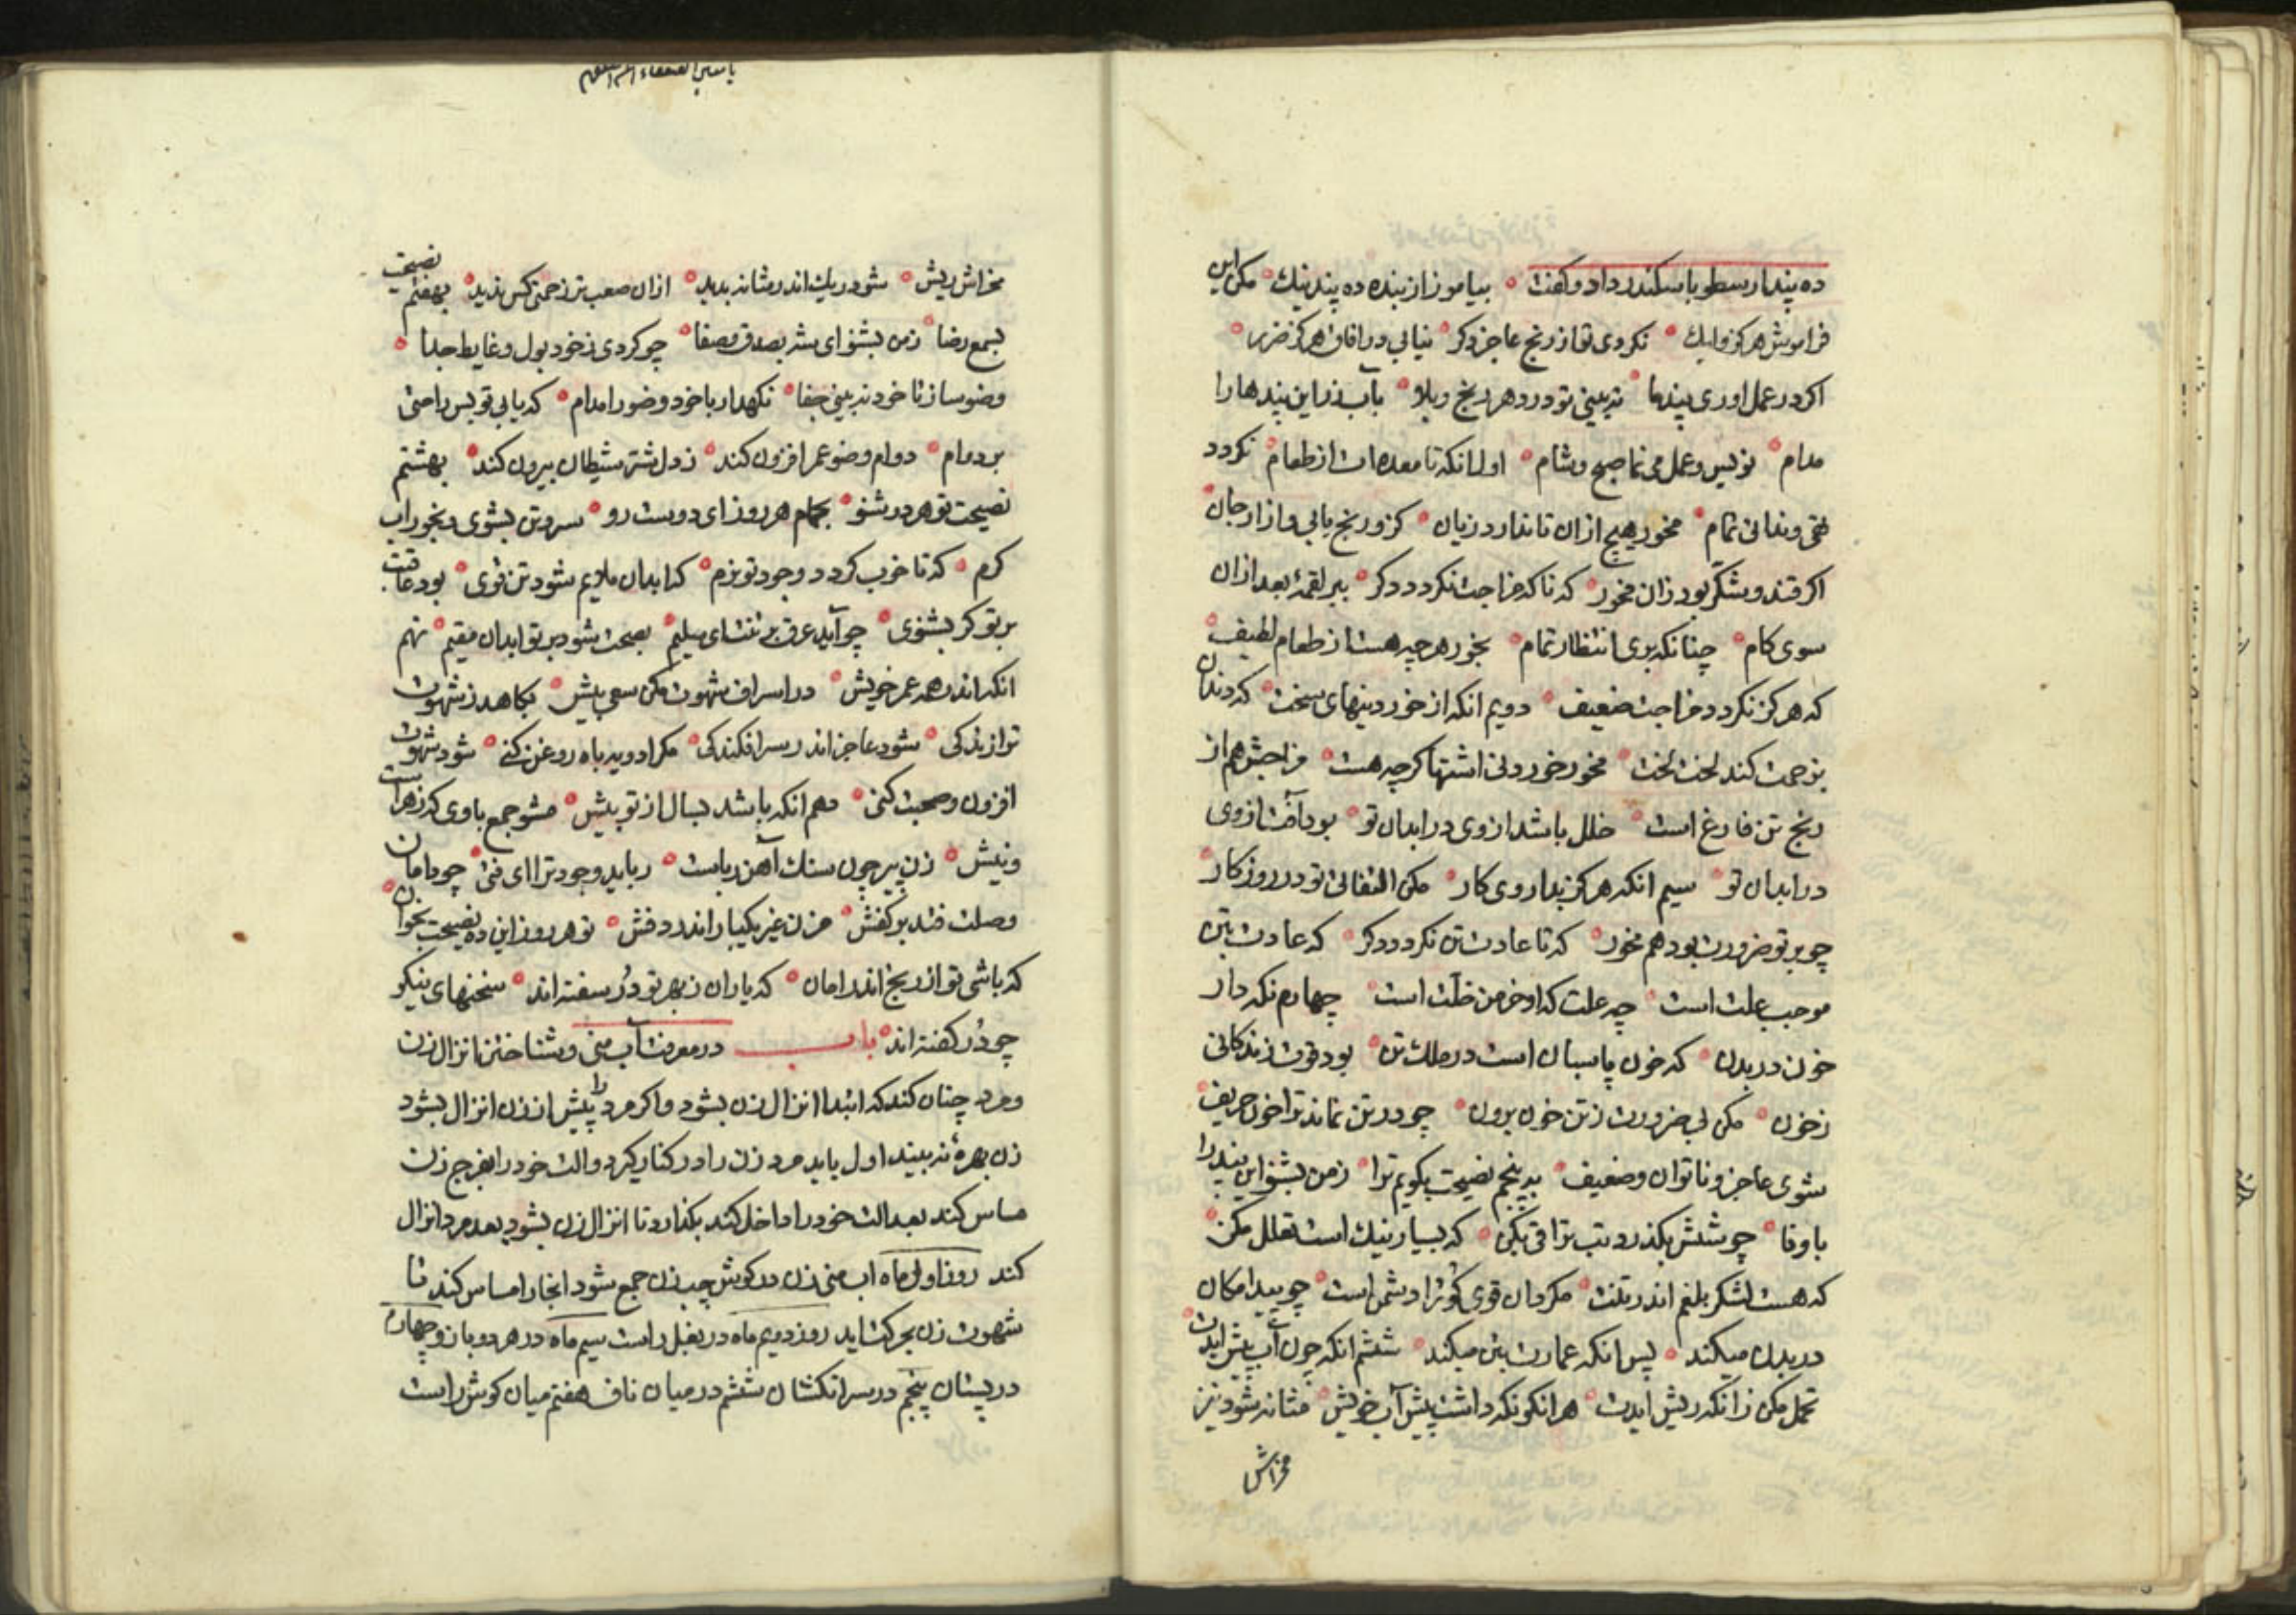 ده پند ارسطو باسکندر داد و کفت بیاموز از بنده ده پند نیک مکن این
فراموش هرکز ولیک نکردی تو از رنج عاجز دکر نیابی در افاق هرکز ضرر
اکر در عمل اوری پند ما نه بینی تو درد و هم رنج و بلا بآب زر این پندها را
مدام نویس و عمل می نما صبح و شام اول انکه تا معده ات از طعام نکردد
تهی و ندانی تمام مخور هیچ ازان تا ندارد زیان کزو رنج یابی و ازار جان
اکر قند و شکر بود زان مخور که تا که مزاجت نکردد دکر ببر لقمهٔ بعد ازان
سوی کام چنانکه بری انتظار تمام بخور هرچه هست از طعام لطیف
که هرکز نکردد مزاجت ضعیف دویم انکه از خوردینهای سخت که دندان
بزحمت کند لخت لخت مخور خوردنی اشتها کرچه هست مزاجش هم از
رنج تن فارغ است خلل باشد از وی در ابدان تو بود آفت از وی
در ابدان تو سیم انکه هرکز بداروی کار مکن التفاتی تو در روزکار
چو بر تو ضرورت بود هم مخور که تا عادت تن نکردد دکر که عادت بتن
موجب علت است چه علت که او خرمن خلّت است چهارم نکه دار
خون در بدن که خون پاسبان است در ملک تن بود قوت زندکانی
زخون مکن بی ضرورت زتن خون برون چو در تن نماند ترا خون حریف
شوی عاجز و ناتوان و ضعیف به پنجم نصیحت بکویم ترا زمن بشنو این پند را
با وفا چو شش بکذرد تب ترا قی بکن که بسیار نیک است تعلل مکن
که هست لشکر بلغم اندر تنت مکردان قوی کو ترا دشمن است چو پیدا مکان
در بدن میکند پس انکه عمارت بتن میکند ششم انکه چون آب پیش ایدت
تحمل مکن زانکه ریش ایدت هر انکو نکه داشت پیش آب خویش مثانه شود نیز
مخراش
مخراش ریش شود ریک اندر مثانه بدید ازان صعبتر زحمتی کس ندید بهفتم نصیحت
بسمع رضا زمن بشنو ای سر بصدق و صفا چو کردی زخود بول و غایط جدا
وضو ساز تا خود نه بینی جفا نکهدار با خود وضو را مدام که یابی تو بس راحتی
بر دوام دوام وضو عمر افزون کند زدل شر شیطان بیرون کند بهشتم
نصیحت تو هم در شنو بحمام هر روز ای دوست رو سر و تن بشوی و بخور اب
کرم که تا خوب کردد وجود تو نرم که ابدان ملایم شود تن قوی بود عاقبت
بر تو کر بشنوی چو آید عرق بر تنت ای سلیم بصحت شود بر تو ابدان مقیم نهم
انکه اندر همه عمر خویش در اسراف شهوت مکن سعی بیش بکاهد زشهوت
ترا زندکی شود عاجز اندر سرافکندکی مکر ادویه باه روغن کنی شود شهوت
افزون و صحبت کنی دهم انکه باشد بسال از تو بیش مشو جمع با وی که زهر است
و نیش زن پیر چون سنک آهن رباست رباید وجود ترا ای فتی چو دامان
وصلت فتد بر کفش مزن غیر یکبار اندر دفش تو هر روز این ده نصیحت بخوان
که باشی تو از رنج اندر امان که یاران زبهر تو دُر سفته اند سخنهای نیکو
چو دُر کفته اند باب در معرفت آب منی و شناختن انزال زن
و مرد چنان کند که ابتدا انزال زن بشود و اکر مرد را پیش از زن انزال بشود
زن بهرهٔ نه بیند اول باید مرد زن را در کنار کیرد و الت خود را بفرج زن
مساس کند بعد الت خود را داخل کند بکذارد تا انزال زن بشود بعد مرد انزال
کند روز اول ماه اب منی زن در کوش چپ زن جمع شود انجا را مساس کند تا
شهوت زن بحرکت اید روز دویم ماه در بغل راست سیم ماه در هر دو بازو چهارم
در پستان پنجم در سر انکشتان ششم در میان ناف هفتم میان کوش راست